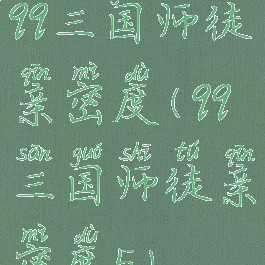 99三国师徒
qīn mì dù
亲密度(99
sān guó shī tú qīn
三国师徒亲
mì dù
密度